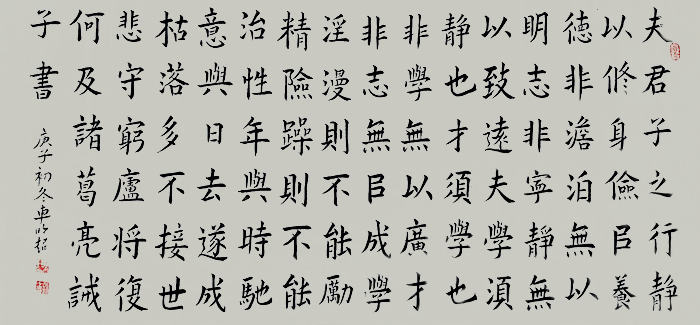 夫君子之行静
以修身儉㠯養
德非澹泊無以
明志非寧静無
以致遠夫學湏
静也才須學也
非學無以廣才
非志無㠯成學
淫漫則不能勵
精險躁則不能
治性年與時馳
意與日去遂成
枯落多不接世
悲守窮廬将復
何及諸葛亮誡
子書
庚子初冬車